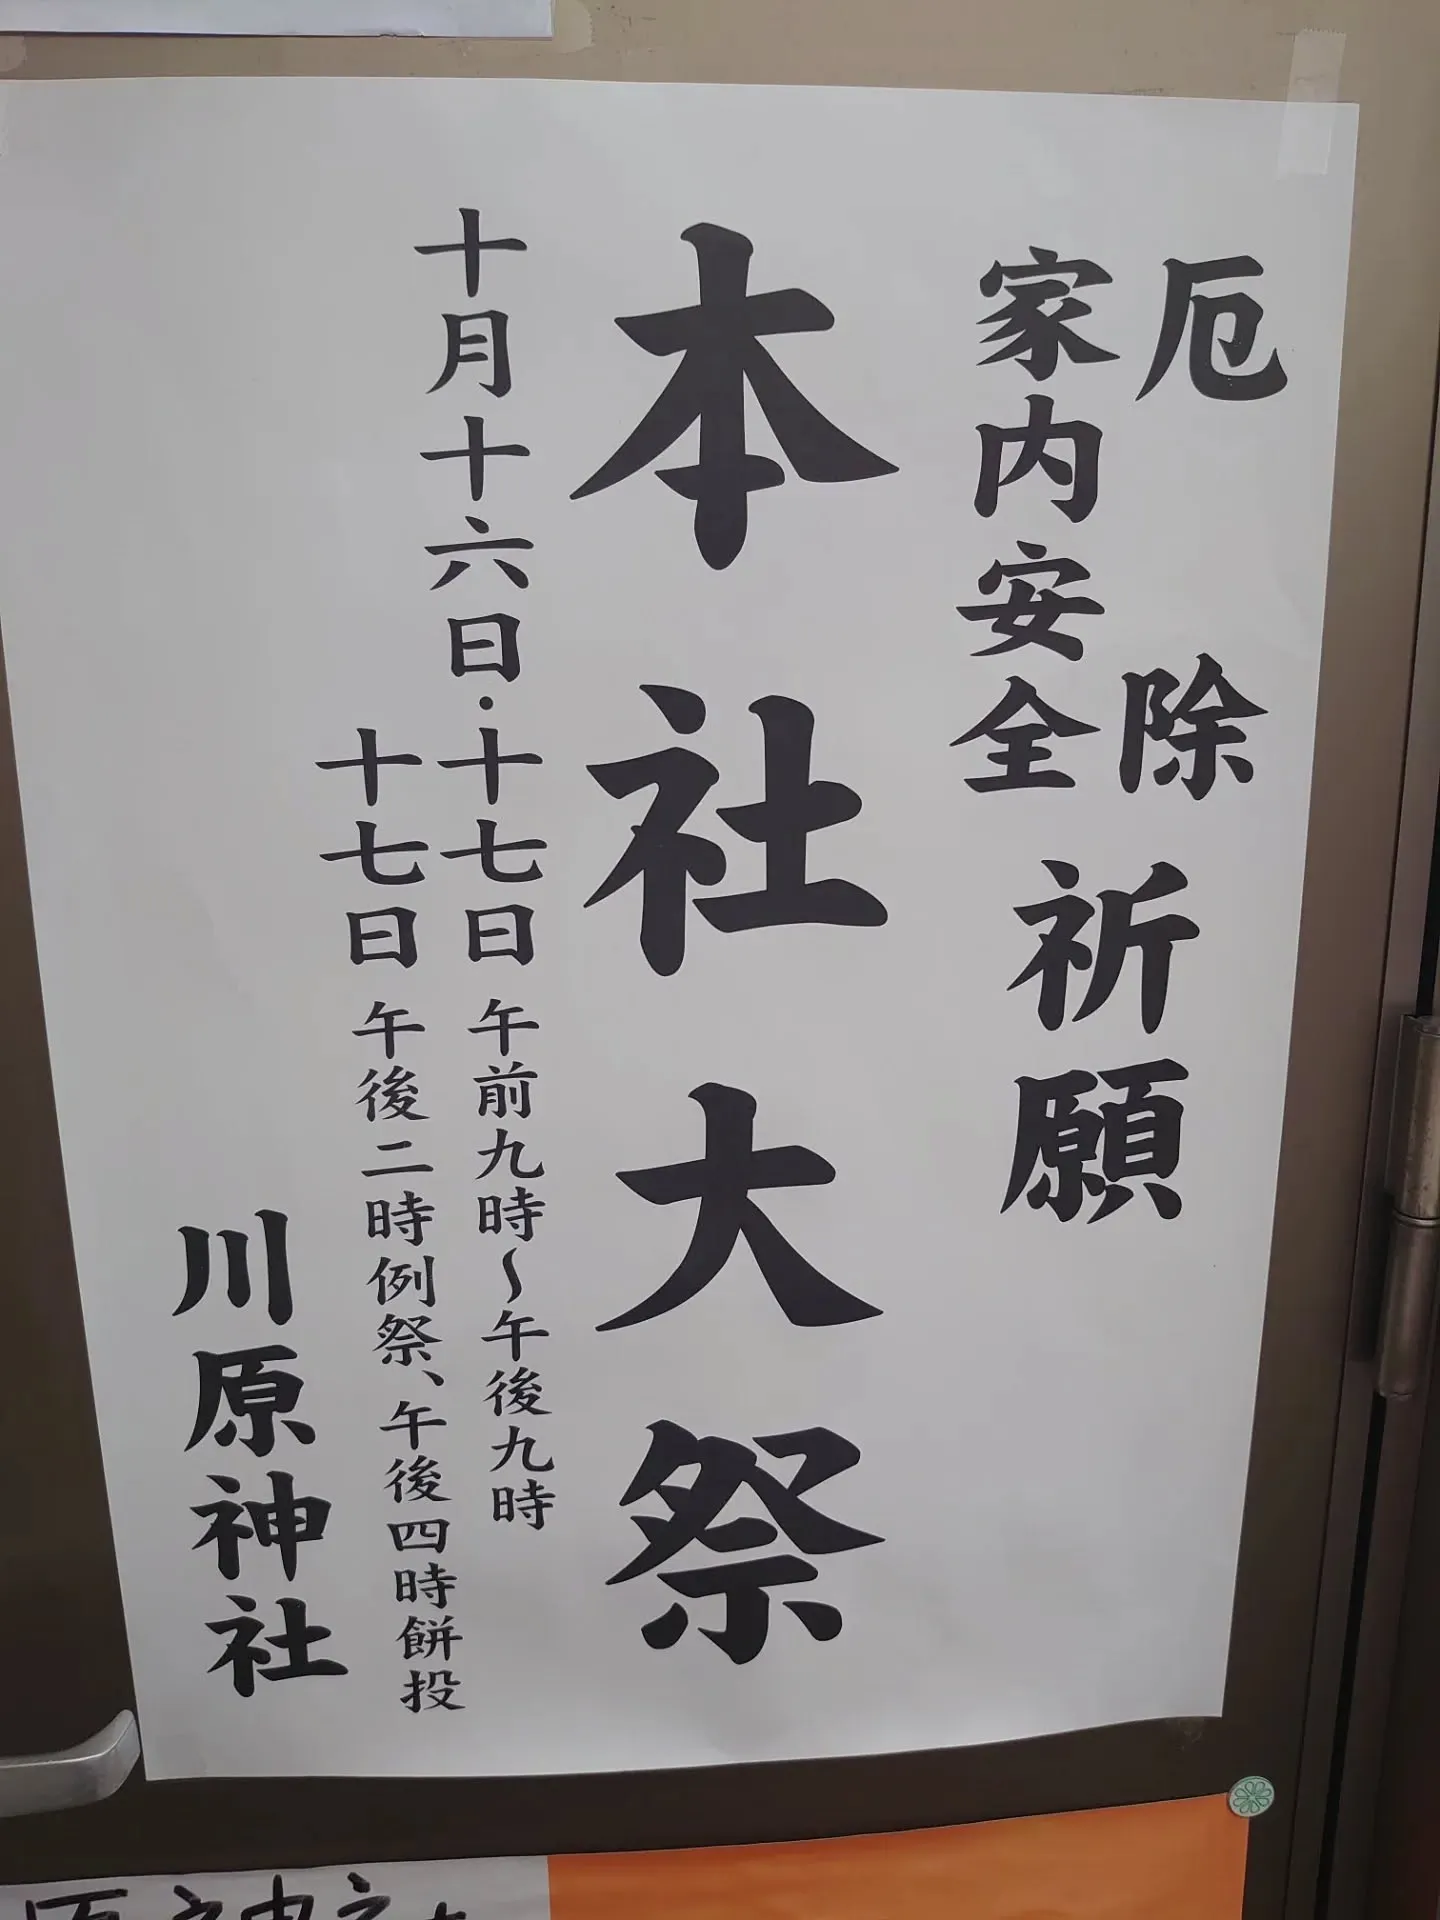 厄除
家内安全
祈願
本社大祭
十月十六日・十七日 午前九時～午後九時
十七日 午後二時例祭、午後四時餅投
川原神社
原神社